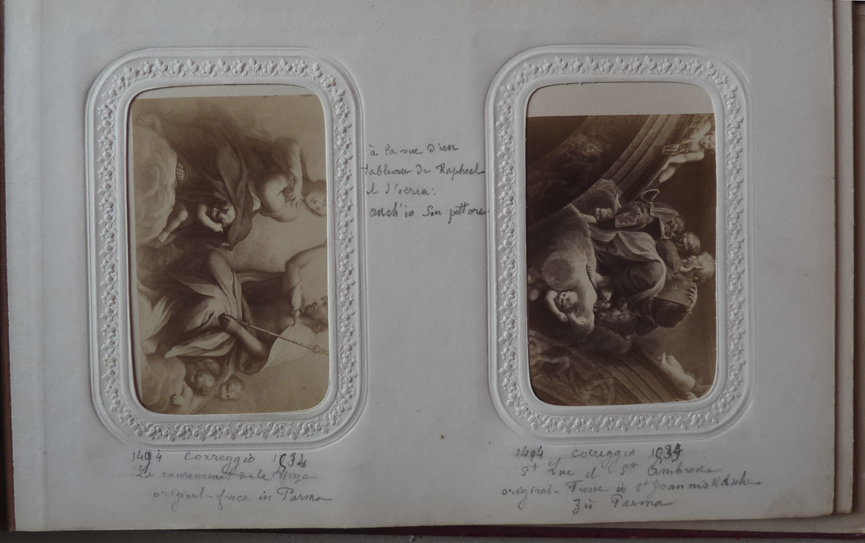 à la vue d'un
tableau de Raphael
il s'écria:
anch'io son pittore.
1494 Correggio 1534
Le couronnement de la
original-fresc in Parma
1494 Correggio 1534
St Luc et St Ambroise
original-Fresc in St Joannis Kirche
zu Parma